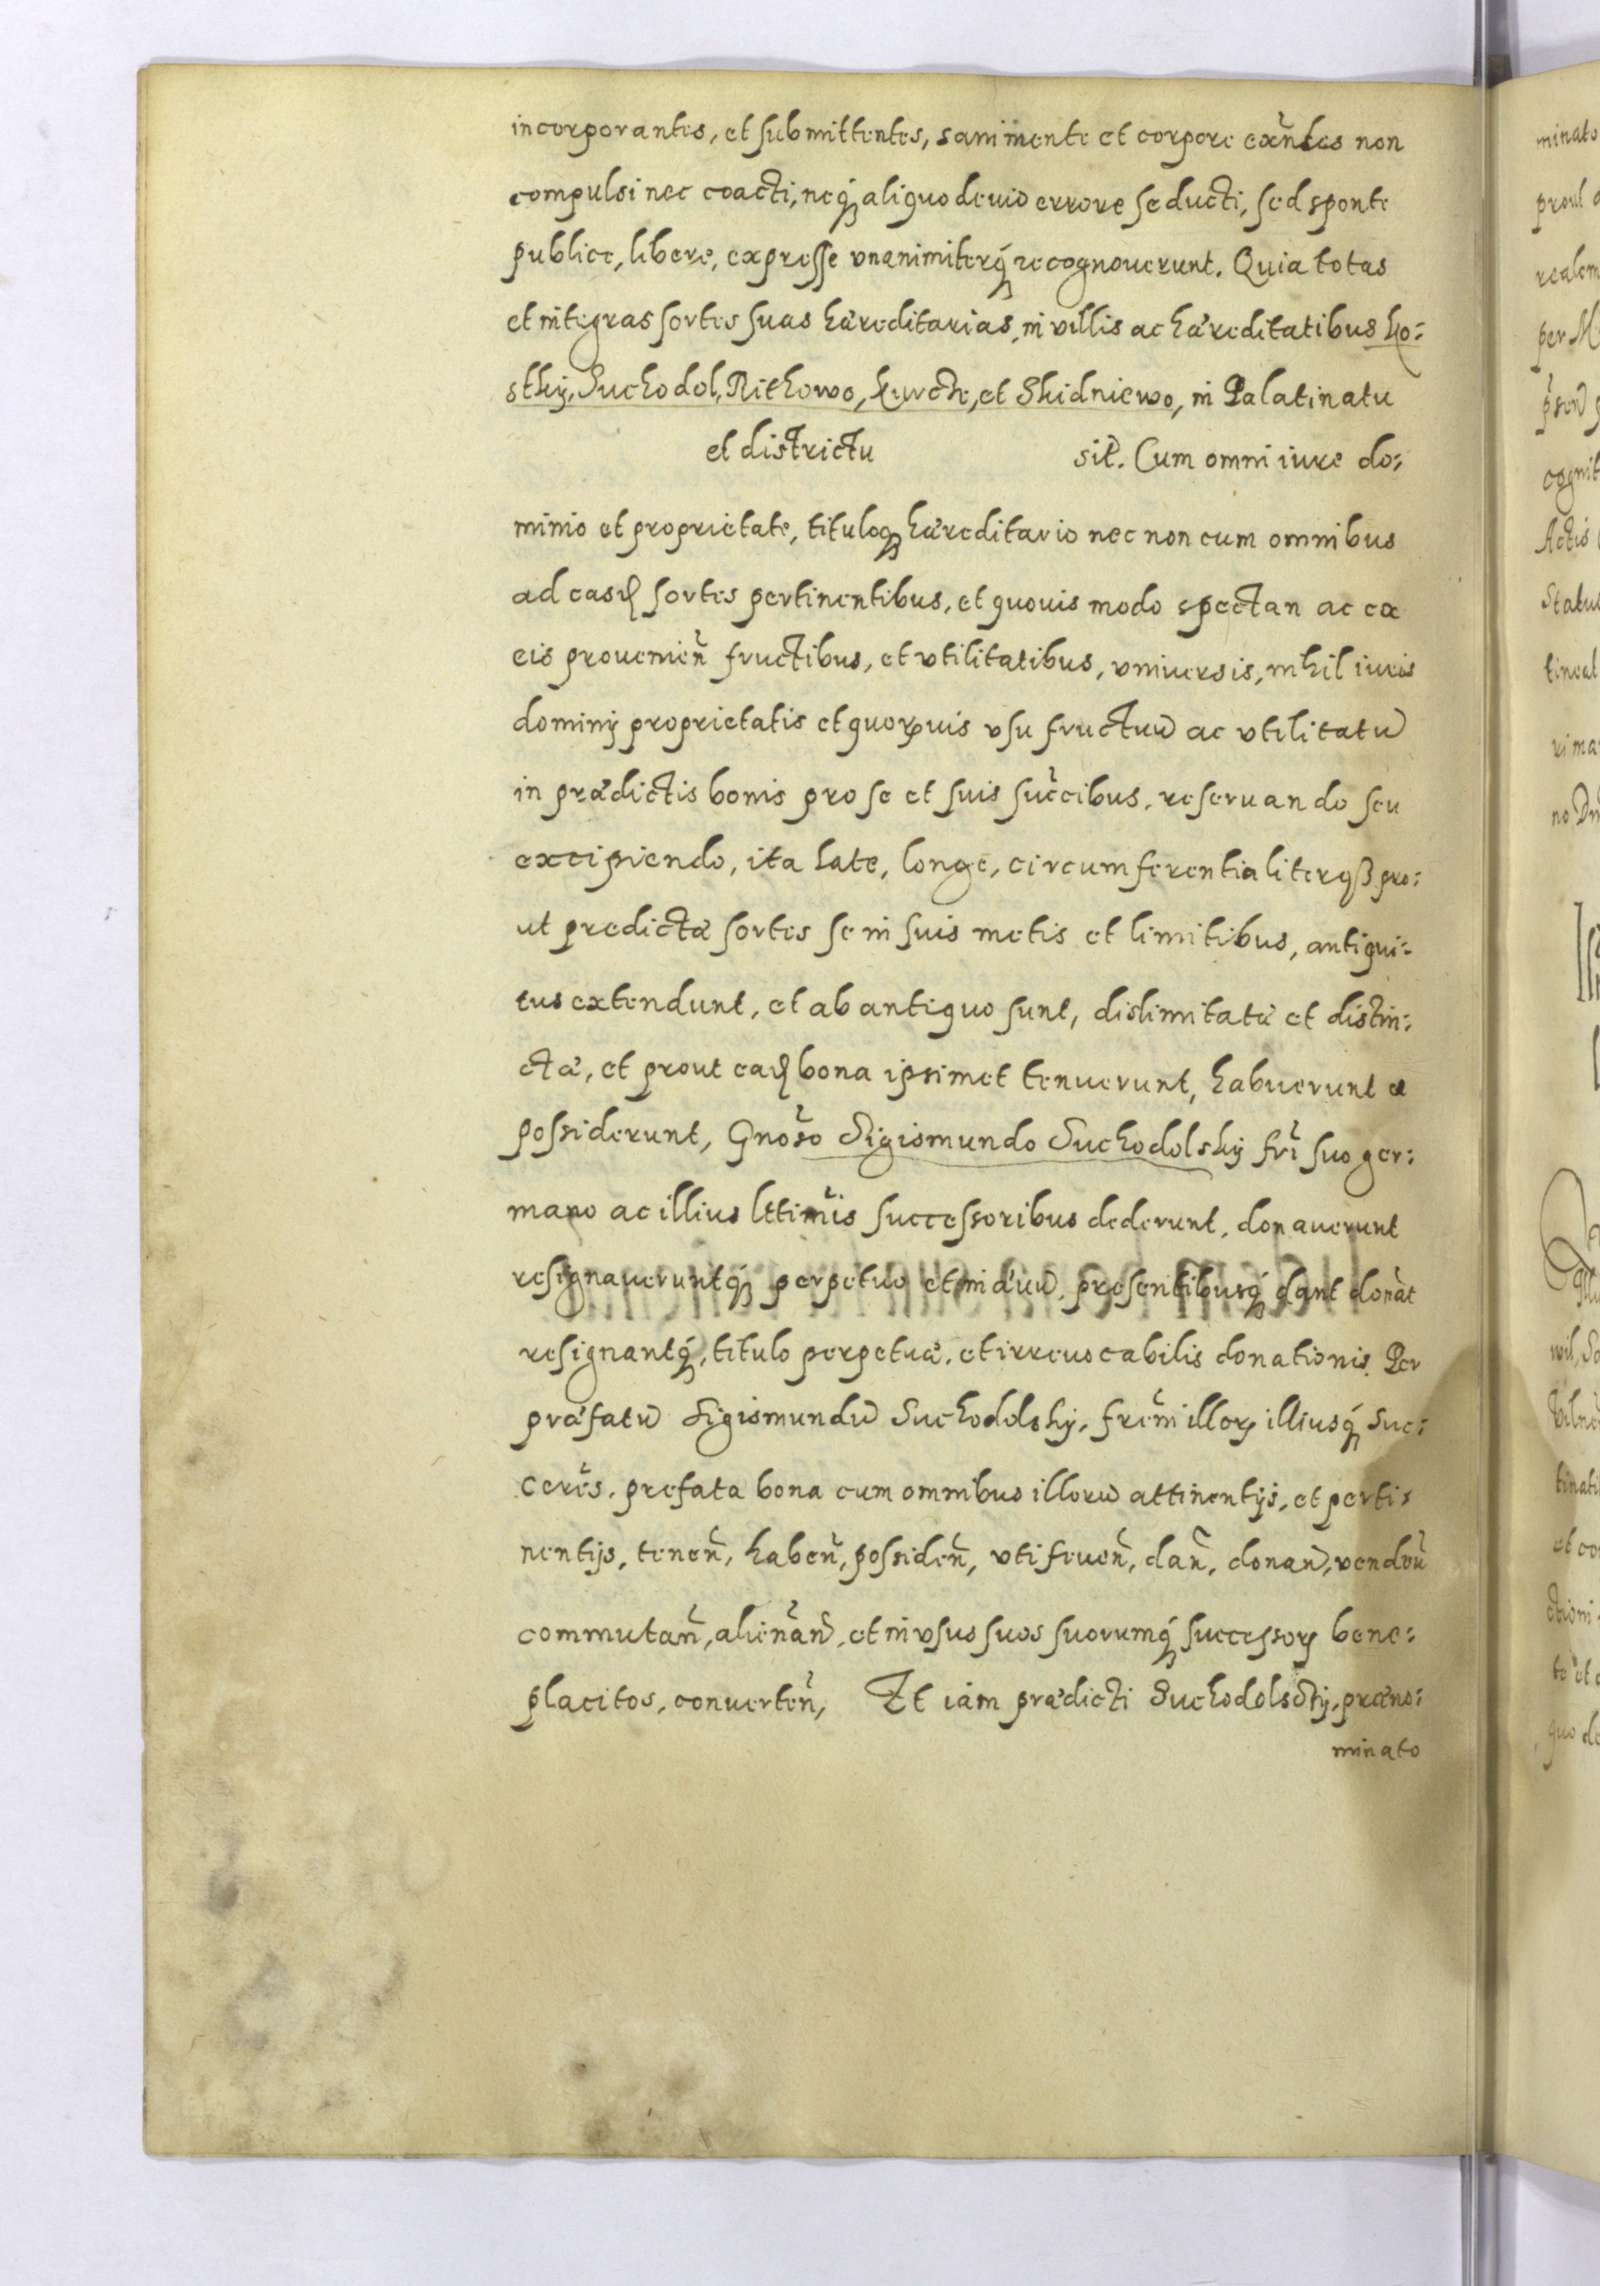 incorporantes, et submittentes, sani mente et corpore exñtes non
compulsi nec coacti, neq́ꝫ aliquo deuio errore seducti, sed sponte
publice, libere, expresse vnanimiterq́ꝫ recognouerunt. Quia totas
et integras sortes suas hæreditarias, in villis ac hæreditatibus Ko:
sthij, Suchodol, Nithowo, Kurche, et Skidniewo, in Palatinatu
et districtu sit̃. Cum omni iure do:
minio et proprietate, tituloqꝫ hæreditario nec non cum omnibus
ad easd̃ sortes pertinentibus, et quouis modo spectan ac ex
eis prouenień fructibus, et vtilitatibus, vniuersis, nihil iuris
dominij proprietatis et quorũuis vsu fructuũ ac vtilitatũ
in prædictis bonis pro se et suis suc̃cibus, reseruando seu
excipiendo, ita late, longe, circumferentialiterqꝫ pro:
ut predictæ sortes se in suis metis et limitibus, antiqui:
tus extendunt, et ab antiquo sunt, dislimitatæ et distin:
ctæ, et prout ead̃ bona ipsimet tenuerunt, habuerunt et
possiderunt, Gnoso̊ Sigismundo Suchodolskij fri̊ suo ger:
mano ac illius lttimis̃ successoribus dederunt, donauerunt
resignaueruntq́ꝫ perpetuo et in æuũ, presentibusq́ꝫ dant donãt
resignantq́ꝫ, titulo perpetuæ, et irreuocabilis donationis. Per
præfatũ Sigismundũ Suchodolskij, frem̃ illorꝝ illiusq́ꝫ Suc:
cerẽs, prefata bona cum omnibus illorũ attinentijs, et perti:
nentijs, teneñ, habeñ, possideñ, vti frueñ, dañ, donañ, vendeñ
commutañ, alienañ, et in vsus suos suorumq́ꝫ successorꝝ bene:
placitos, conuerteñ, Et iam prædicti Suchodolsctij, præno:
minato